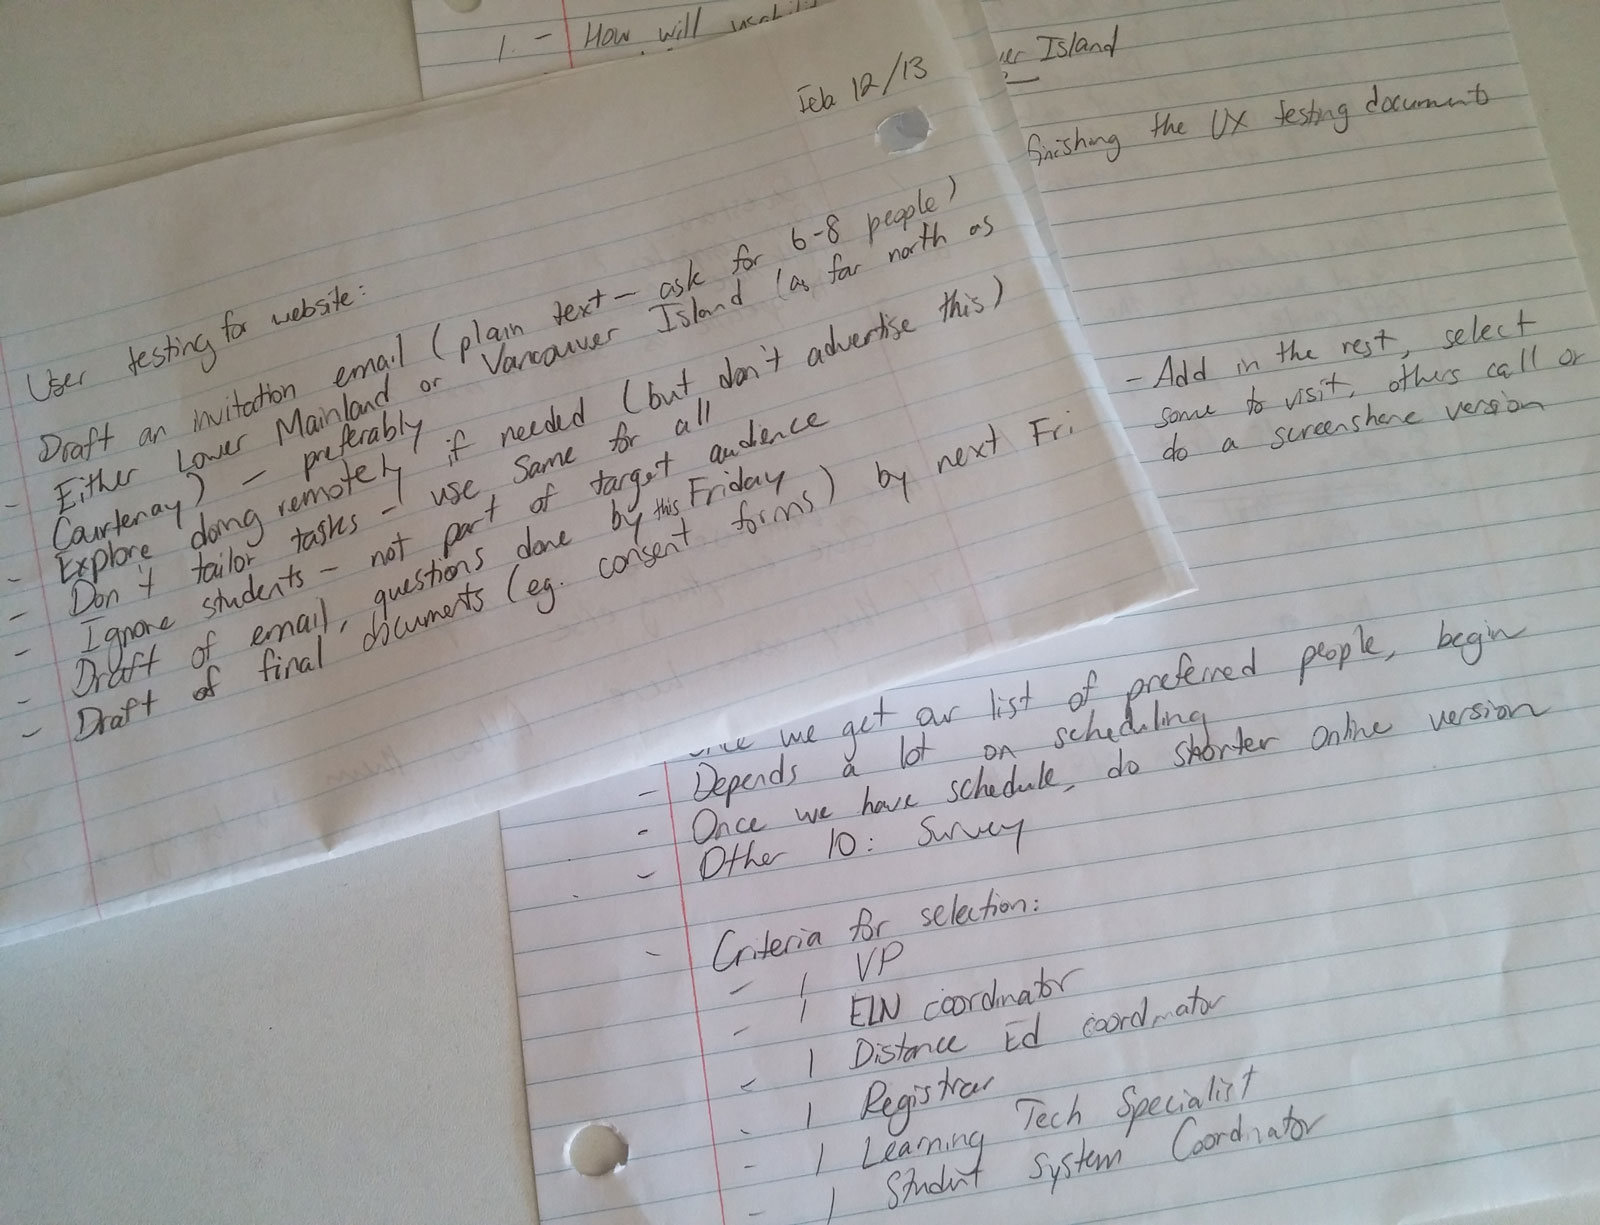 1. - How will
Feb 12/13
User testing for website:
Draft an invitation email (plain text - ask for 6-8 people)
- Either Lower Mainland or Vancouver Island (as far north as
Courtenay) - preferably
- Explore doing remotely if needed (but don't advertise this)
- Don't tailor tasks - use same for all
- Ignore students - not part of target audience
- Draft of email, questions done by this Friday
- Draft of final documents (eg. consent forms) by next Fri
Island
finishing the UX testing documents
- Add in the rest, select
some to visit, others call or
do a screenshare version
we get our list of preferred people, begin
- Depends a lot on scheduling
- Once we have schedule, do shorter online version
- Other 10: Survey
- Criteria for selection:
- 1 VP
- 1 ELN coordinator
- 1 Distance Ed coordinator
- 1 Registrar
- 1 Learning Tech Specialist
- 1 Student System Coordinator